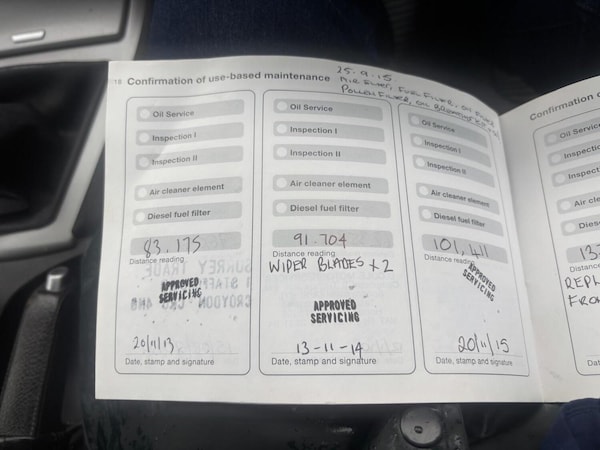 18 Confirmation of use-based maintenance
25-9-15.
AIR FILTER, FUEL FILTER, OIL FILTER
POLLEN FILTER, OIL
Oil Service
Inspection I
Inspection II
Air cleaner element
Diesel fuel filter
83.175
Distance reading
APPROVED
SERVICING
20/11/13
Date, stamp and signature
Oil Service
Inspection I
Inspection II
Air cleaner element
Diesel fuel filter
91.704
Distance reading
WIPER BLADES x 2
APPROVED
SERVICING
13-11-14
Date, stamp and signature
Oil Service
Inspection I
Inspection II
Air cleaner element
Diesel fuel filter
101,411
Distance reading
APPROVED
SERVICING
20/11/15
Date, stamp and signature
Confirmation o
Oil Service
Inspectio
Inspect
Air cle
Diese
13
Distance
REPL
FRO
Dat